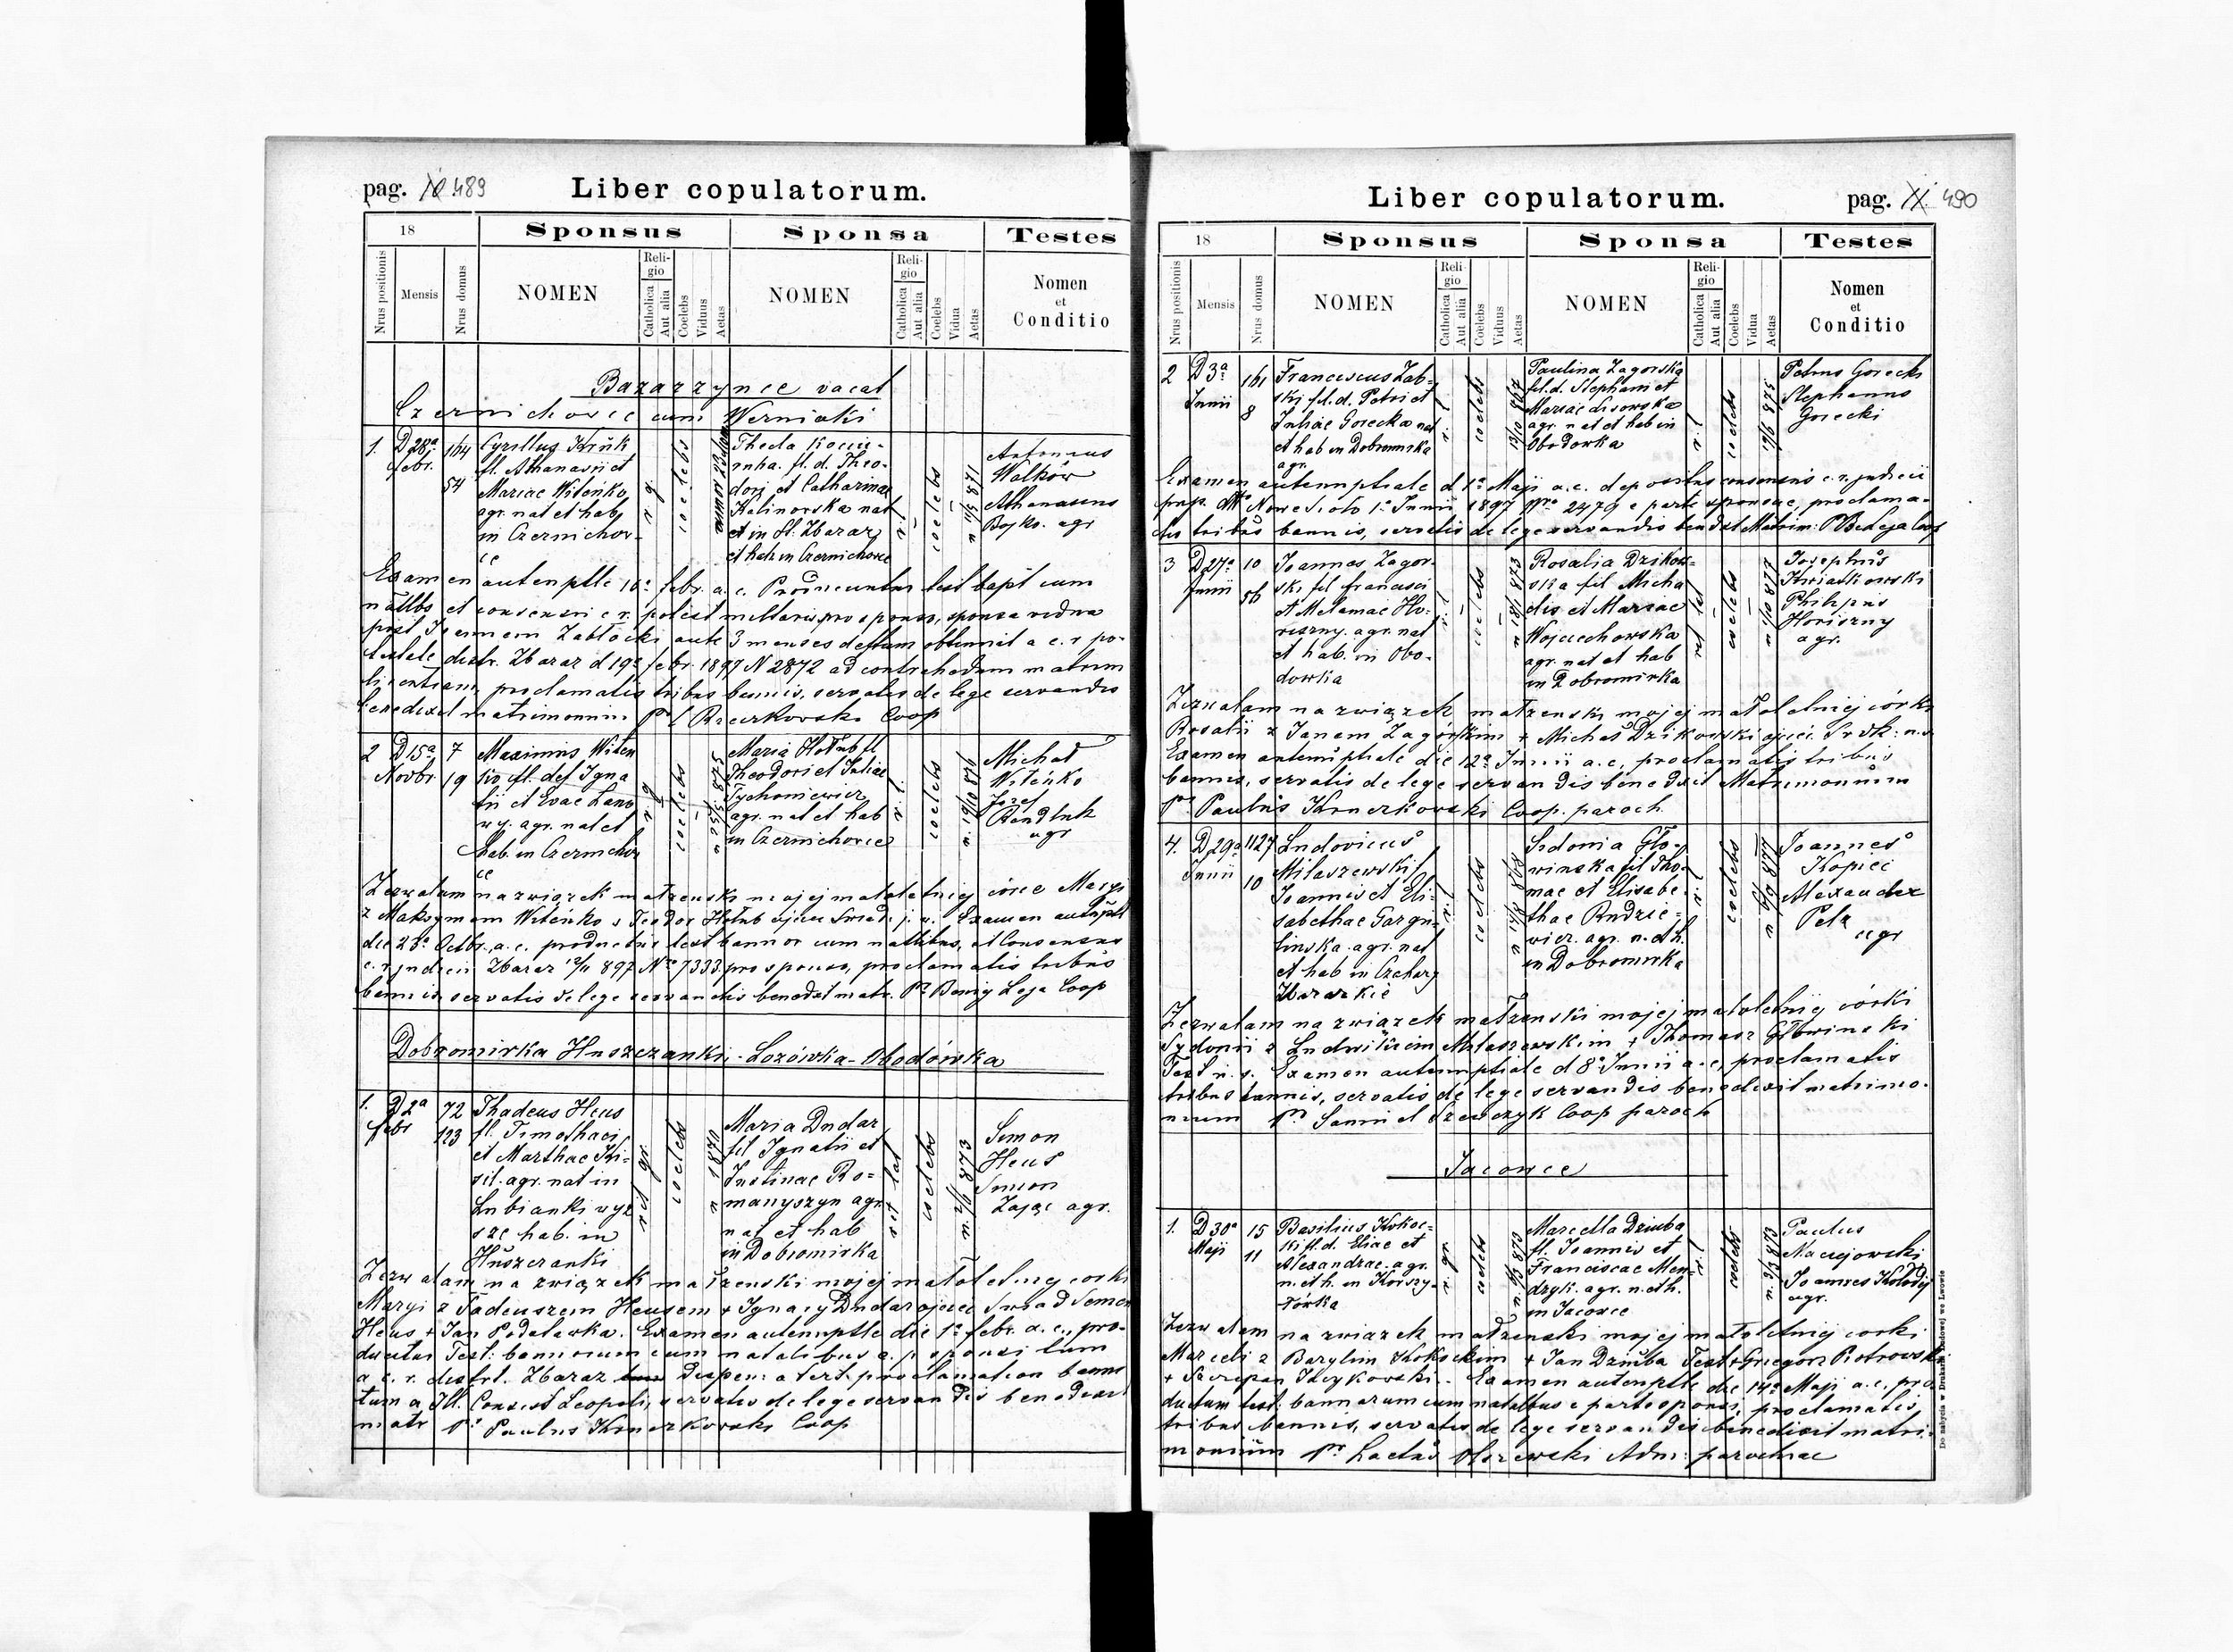 pag. 489
Liber copulatorum.
18
Sponsus
Sponsa
Testes
Nrus positionis
Mensis
Nrus domus
NOMEN
Religio
Catholica
Aut alia
Coelebs
Viduus
Aetas
NOMEN
Religio
Catholica
Aut alia
Coelebs
Vidua
Aetas
Nomen
et
Conditio
Bazarzynce vacat
Czernichowce cum Werniaki
1. D 28a febr. 164 54
Cyrillus
fil. Athanasii et
Mariae Witeńko
agr. nat et hab
in Czernichow
ce
r g
coelebs
Thecla
fil. d. Theo-
dorj et Catharinae
Kalinowska nat
et in St. Zbaraz
et hab in Czernichowce
r. l
coelebs
Antonius
Walków
Athanasius
Bojko. agr
Examen 16a febr. a. c. test bapt cum
et consensu c. r. potest militaris pro sponso, sponsa vidua
post Joannem Zabłocki ante 3 menses obtinuit a c. r po-
testate distr. Zbaraz d 19a febr. 1897 N 2872 ad contrahedum matrim
licentiam, proclamatis tribus bannis, servatis de lege servandis
benedixit matrimonium Coop
2 D 15a Novbr. 7 19
Maximus Witen
ko fil. def Igna
tii et Evae Lano
wy. agr. nat et
hab. in Czernichow
ce
r g
coelebs
Maria Hołub fil
Theodori et Juliae
Tychoniewicz
agr. nat et hab
in Czernichowce
r l
coelebs
Michał
Witeńko
Józef
agr
Zezwalam na związek małzenski mojej małoletniej córce Maryi
z Maksymem Witeńko Teodor Hołub ojciec Examen
die 28a Octbr. a. c. productus test bannor cum natlibus, et Consensus
c. r judicii Zbaraz 12/11 897 No 7333 pro sponso, proclamatis tribus
bannis servatis de lege servandis benedixit matr. Coop
Dobromirka Huszczanki - Lozówka - Obodówka
1. D 2a febr 72 123
Thadeus Heus
fil. Timothaei
et Marthae Ki-
sil. agr. nat in
Lubianki wyz
sze hab. in
Huszczanki
rit gr.
coelebs
n 1870
Maria Dudar
fil Ignatii et
Justinae Ro-
manyszyn agr.
nat et hab
in Dobromirka
rit lat
coelebs
Simon
Heus
Simon
Zając agr.
Zezwalam na związek małżenski mojej małoletniej corki
Maryi z Tadeuszem Heusem + Ignacy Dudar ojciec Swiad Semen
Heus + Jan Podolawka. Examen die 1a febr. a. c., pro-
ductus Test: bannorum cum natalibus e. p sponsi tum
a c. r. distri. Zbaraz Dispen: a tert. proclamation banno
tum a Ill. Consist Leopoli, servatis de lege servandis benedixit
matr Pr Paulus Coop
Liber copulatorum.
pag. 490
18
Sponsus
Sponsa
Testes
Nrus positionis
Mensis
Nrus domus
NOMEN
Religio
Catholica
Aut alia
Coelebs
Viduus
Aetas
NOMEN
Religio
Catholica
Aut alia
Coelebs
Vidua
Aetas
Nomen
et
Conditio
2 D 3a Junii 161 8
Franciscus Zab-
ski fil. d. Petri et
Juliae Gorecka nat
et hab in Dobromirka
agr.
r. l
coelebs
Paulina Zagorska
fil. d. Stephani et
Mariae Lisowska
agr. nat et hab in
Obodowka
r. l
coelebs
Petrus Gorecki
Stephanus
Gorecki
Examen antenuptiale d 1a Maji a. c. depositus consensus c. r. judicii
Nowe Sioło 1a Junii 1897 Nro 2479 e parte sponsae, proclama-
tis tribus bannis, servatis de lege servandis bendxt Matrim: Coop
3 D 27a Junii 10 56
Joannes Zagor-
ski fil francisci
et Melaniae Ho-
riszny. agr. nat
et hab. in Obo-
dowka
coelebs
Rosalia Dzikow-
ska fil Micha
elis et Mariae
Wojciechowska
agr. nat et hab
in Dobromirka
rit lat
coelebs
Josephus
Kwiatkowski
Philipus
Horiszny
agr.
Zezwalam na związek małzenski mojej małoletniej córki
Rosalii z Janem Zagórskim + Michał Dzikowski ojciec
Examen antenuptiale die 12a Junii a. c., proclamatis tribus
bannis, servatis de lege servandis benedixit Matrimonium
Pr Paulus Coop. paroch.
4. D 29a Junii 1127 10
Ludovicus
Milaszewski
Joannis et Eli-
sabethae Gargu-
linska. agr. nat
et hab in Czehary
Zbarazkie
r. l
coelebs
Sidonia Gło-
winska fil Tho-
mae et Elisabe-
thae Rudzie-
wicz. agr. n. et h.
in Dobromirka
r. l
coelebs
Joannes
Kopiec
Alexander
Petz
agr
Zezwalam na związek małzenski mojej małoletniej córki
Sydonii z Ludwikiem Milaszewskim + Thomasz Głowinski
Test n. s. Examen antenuptiale d 8a Junii a. c, proclamatis
tribus bannis, servatis de lege servandis benedixit matrimo-
nium Pr Samuel Szewczyk Coop paroch
Jacowce
1. D 30a Maji 15 11
Basilius Kokoc-
ki fil. d. Eliae et
Alexandrae. agr.
n. et h. in Korszy-
łówka
r. gr.
coelebs
Marcella Dziuba
fil. Joannis et
Franciscae Men-
dzyk. agr. n. et h.
in Jacowce
r. l
coelebs
n. 3/3 873
Paulus
Maciejowski
Joannes Kołodij
agr.
Zezwalam na związek małzenski mojej małoletniej corki
Marceli z Bazylim Kokockim + Jan Dziuba Test + Gregorz Piotrowski
+ Szczepan Examen die 14a Maji a. c. pro
ductum test: bannorum cum natalibus e parte sponsi, proclamatis
tribus bannis, servatis de lege servandis benedixit matri-
monium Pr Olszewski Adm: parochiae
Do nabycia w Drukarni Ludowej we Lwowie